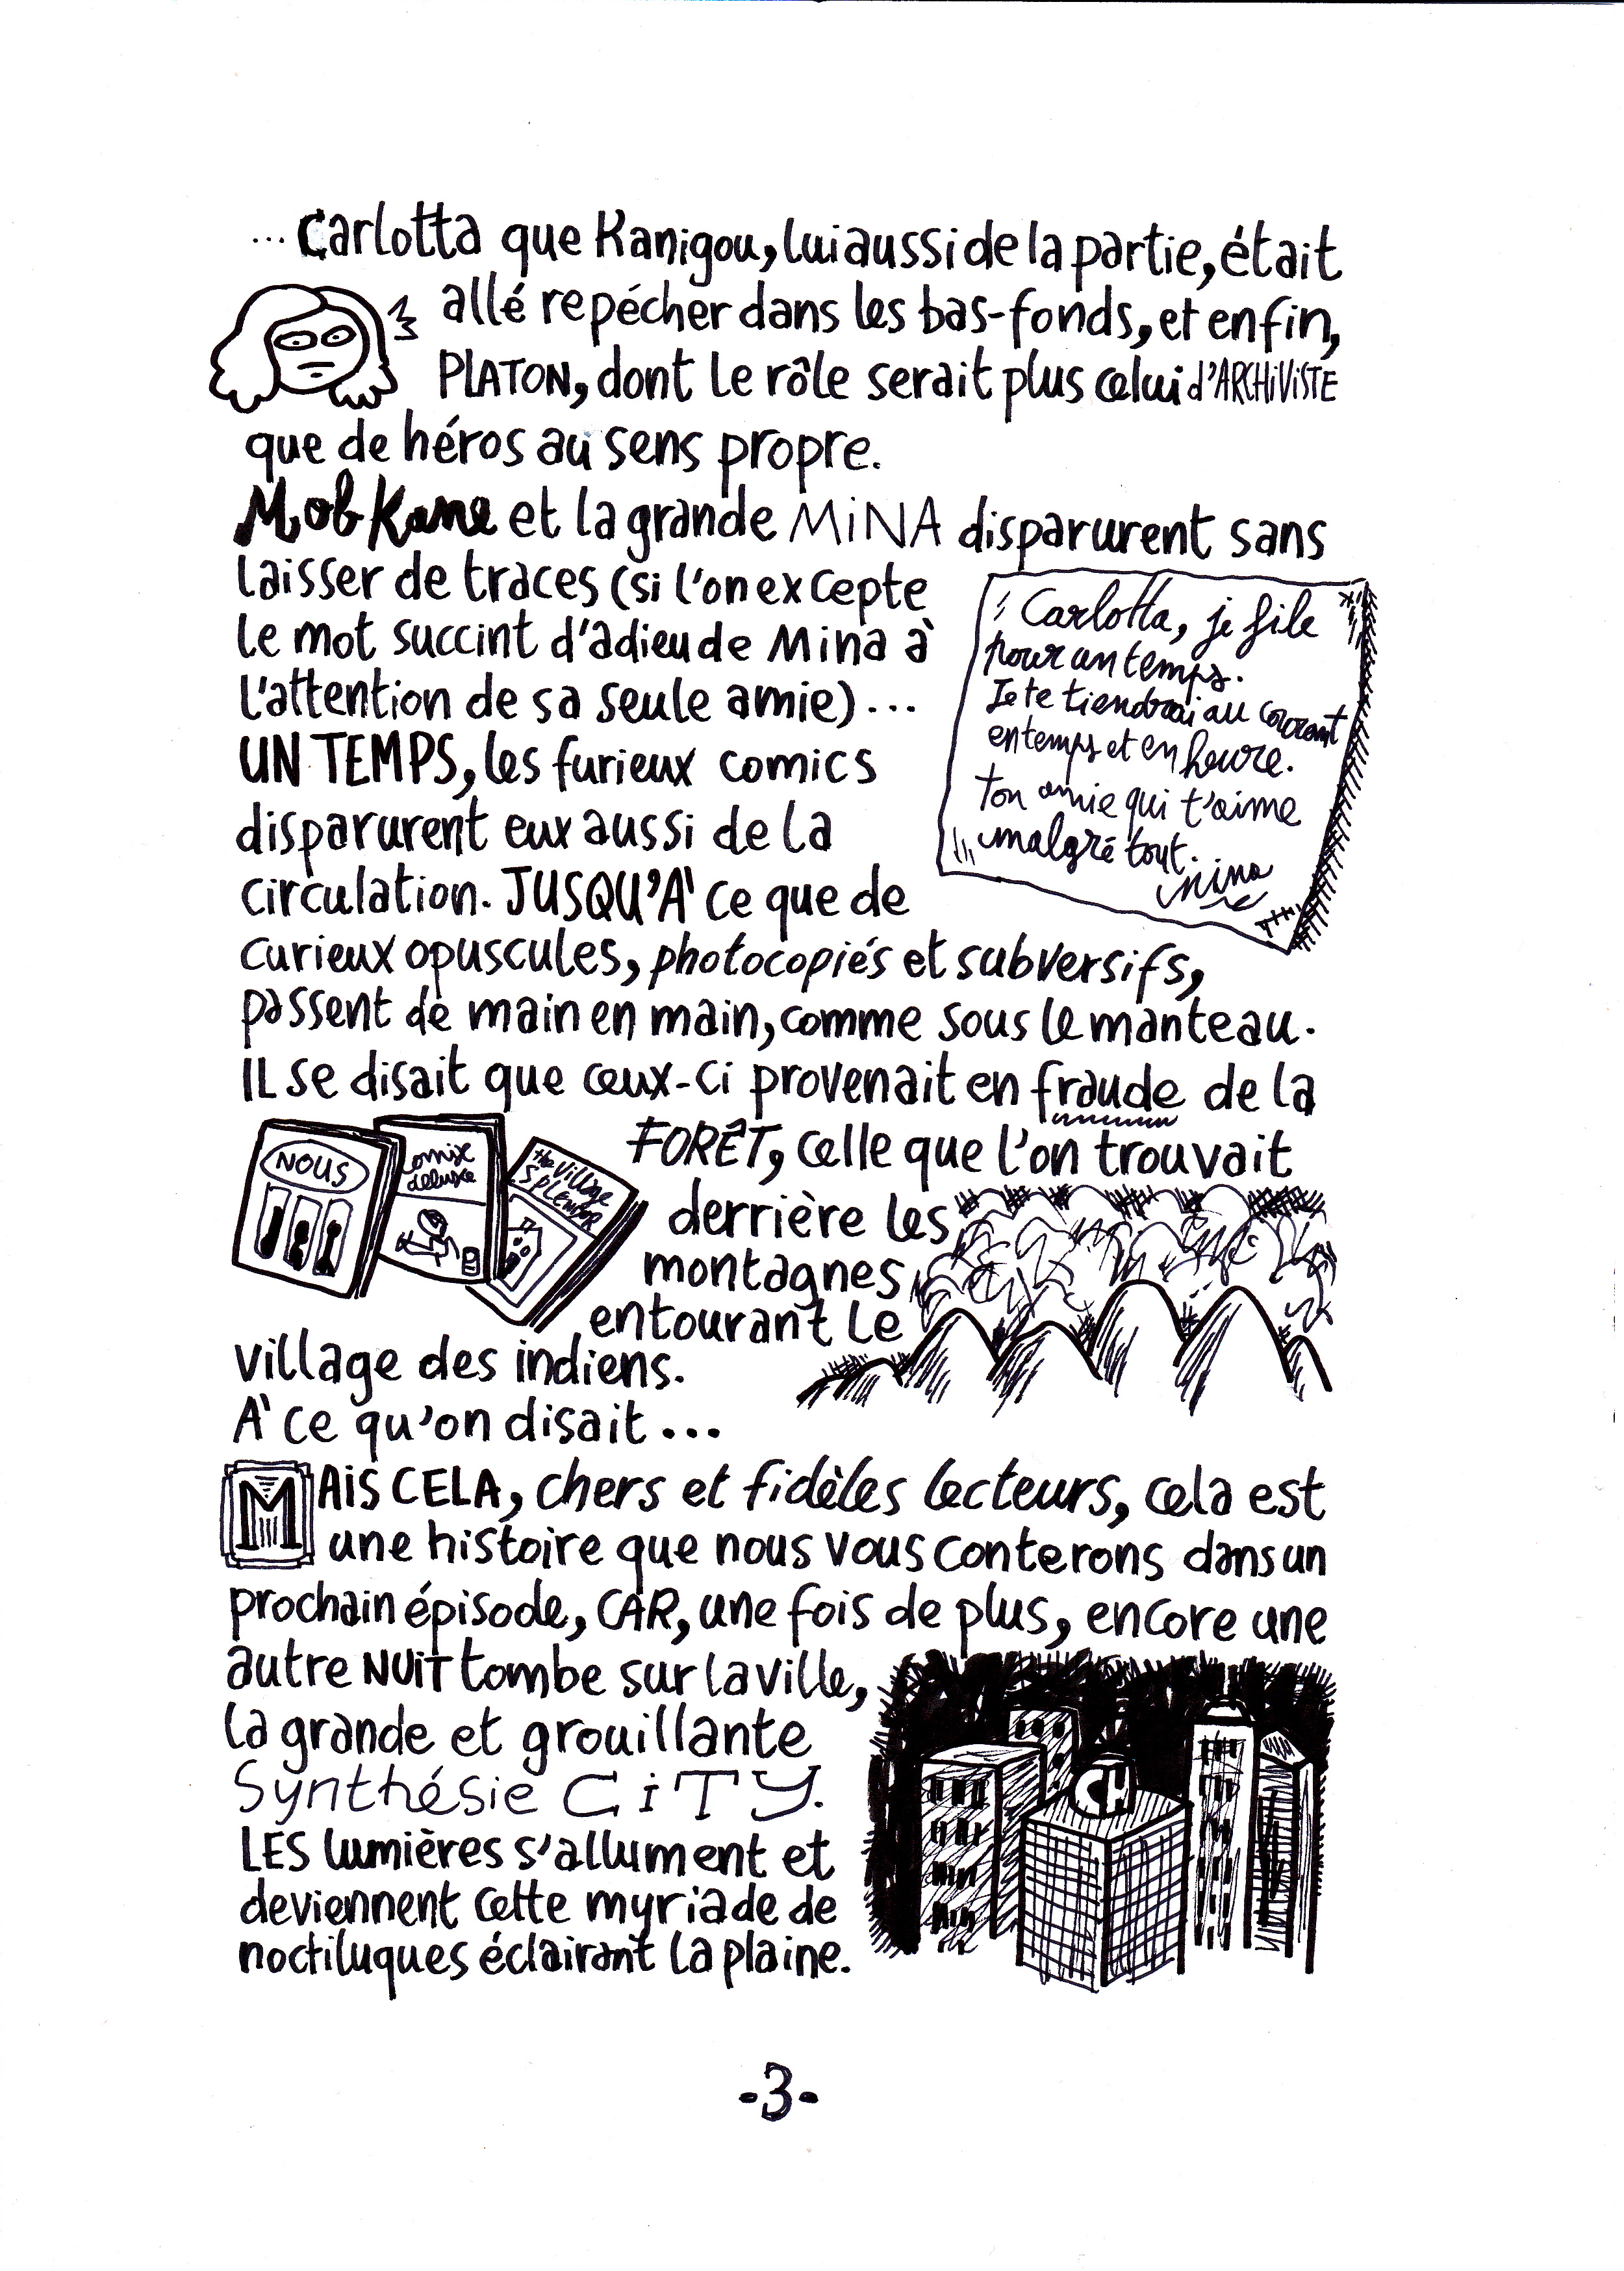 ... Carlotta que Kanigou, lui aussi de la partie, était
allé repécher dans les bas-fonds, et enfin,
PLATON, dont le rôle serait plus celui d'ARCHiViSTE
que de héros au sens propre.
Mob Kane et la grande MiNA disparurent sans
laisser de traces (si l'on excepte
le mot succint d'adieu de Mina à
l'attention de sa seule amie)...
Carlotta, je file
pour un temps.
Je te tiendrai au courant
en temps et en heure.
ton amie qui t'aime
malgré tout.
Mina
UN TEMPS, les furieux comics
disparurent eux aussi de la
circulation. JUSQU'À ce que de
curieux opuscules, photocopiés et subversifs,
passent de main en main, comme sous le manteau.
IL se disait que ceux-ci provenait en fraude de la
FORÊT, celle que l'on trouvait
derrière les
montagnes
entourant le
village des indiens.
NOUS
comix
deluxe
the Village
SPLENDOR
À ce qu'on disait...
MAiS CELA, chers et fidèles lecteurs, cela est
une histoire que nous vous conterons dans un
prochain épisode, CAR, une fois de plus, encore une
autre NUiT tombe sur la ville,
la grande et grouillante
Synthésie CiTY.
LES lumières s'allument et
deviennent cette myriade de
noctiluques éclairant la plaine.
CH
-3-